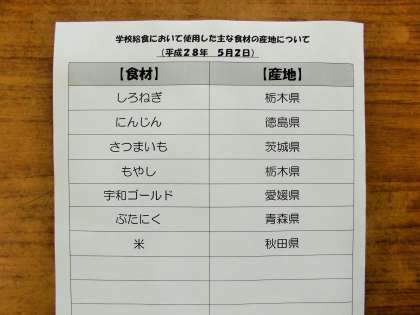 学校給食において使用した主な食材の産地について
(平成28年 5月2日)
【食材】 【産地】
しろねぎ 栃木県
にんじん 徳島県
さつまいも 茨城県
もやし 栃木県
宇和ゴールド 愛媛県
ぶたにく 青森県
米 秋田県